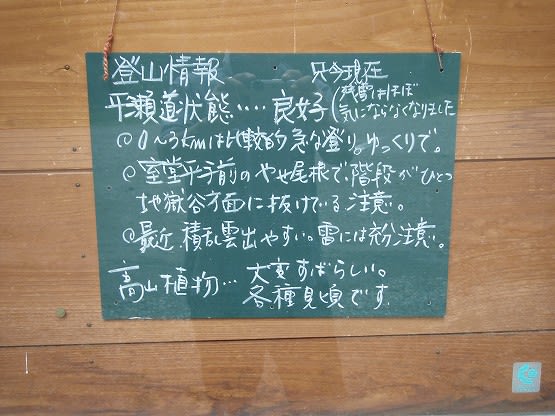 登山情報 只今現在
平瀬道状態‥‥良好(残雪はほぼ
気にならなくなりました
◎0〜3kmは比較的急な登り。ゆっくりで。
◎室堂平手前のやせ尾根で、階段がひとつ
地獄谷方面に抜けている注意。
◎最近、積乱雲出やすい。雷には充分注意。
高山植物… 大変すばらしい。
各種見頃です